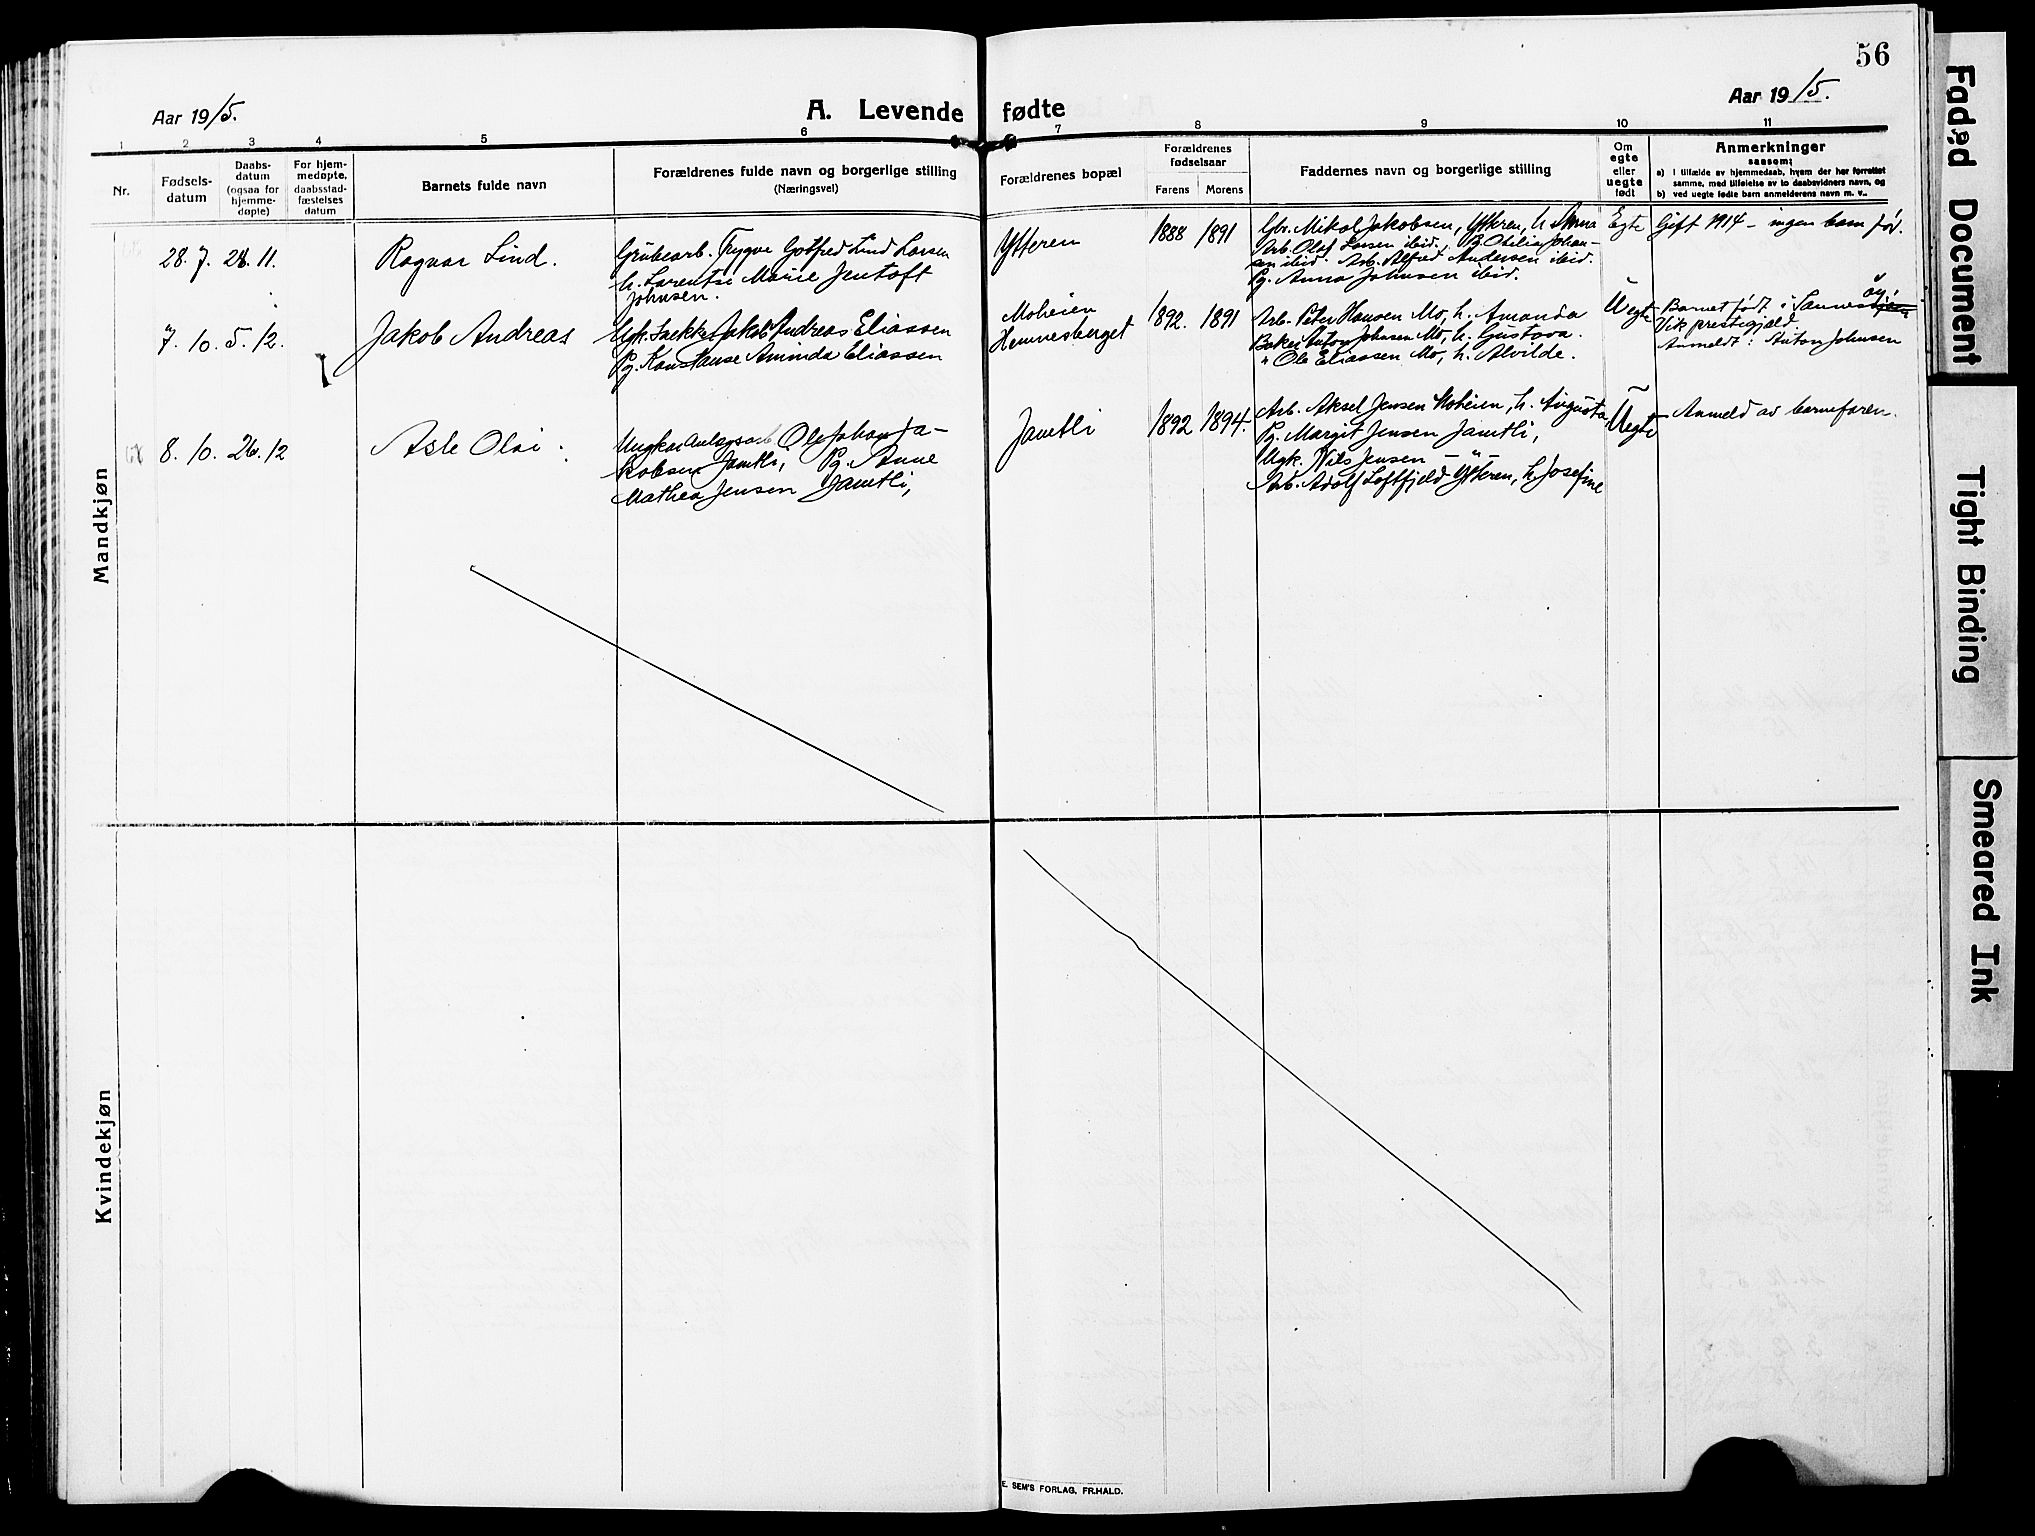 56
Aar 1915.
A. Levende fødte
Aar 1915.
1 2 3 4 5 6 7 8 9 10 11
Nr.
Fødsels-
datum
Daabs-
datum
(ogsaa for
hjemme-
døpte)
For hjem-
medøpte,
daabsstad-
fæstelses
datum
Barnets fulde navn
Forældrenes fulde navn og borgerlige stilling
(Næringsvei)
Forældrenes bopæl
Forældrenes
fødselsaar
Farens Morens
Faddernes navn og borgerlige stilling
Om
egte
eller
uegte
født
Anmerkninger
saasom:
a) I tilfælde av hjemmedaab, hvem der har forrettet
samme, med tilføielse av to daabsvidners navn, og
b) ved uegte fødte barn anmelderens navn m. v..
Mandkjøn
28. 7. 28. 11.
Ragnar Lind.
Grubearb. Trygve Gotfred Lind Larsen
h. Lorentse Marie Jentoft
Johnsen.
Ytteren
1888 1891
Gbr. Mikal Jakobsen, Ytteren, h. Anna
Arb. Olaf Larsen ibid., Pg. Otilia Johan-
sen ibid. Arb. Alfred Andersen ibid.
Pg. Anna Johnsen ibid.
Egte
Gift 1914 - ingen barn før.
7. 10. 5. 12.
Jakob Andreas
Ugk. Jakob Andreas Eliassen
Pg. Konstanse Aminda Eliassen
Moheien
Hemnesberget
1892. 1891
Arb. Peter Hansen Mo, h. Amanda
Baker Anton Johnsen Mo, h. Gustava.
" Ole Eliassen Mo, h. Alvilde.
Uegte
Barnet født i Sannes
Vik prestegjeld
Anmeldt: Anton Johnsen
8. 10. 26. 12
Asle Olai
Ungkar Anlægsarb. Ole Johan Ja-
kobsen Jamtli, Pg. Anne
Mathea Jensen Jamtli,
Jamtli
1892 1894.
Arb. Aksel Jensen Moheien, h. Augusta
Pg. Margit Jensen Jamtli,
Ugk. Nils Jensen - " -
Arb. Adolf Loftfjeld Ytteren, h. Josefine
Uegte
Anmeld av barnefaren.
Kvindekjøn
E. SEM'S FORLAG, FR.HALD.
Faded Document
Tight Binding
Smeared Ink